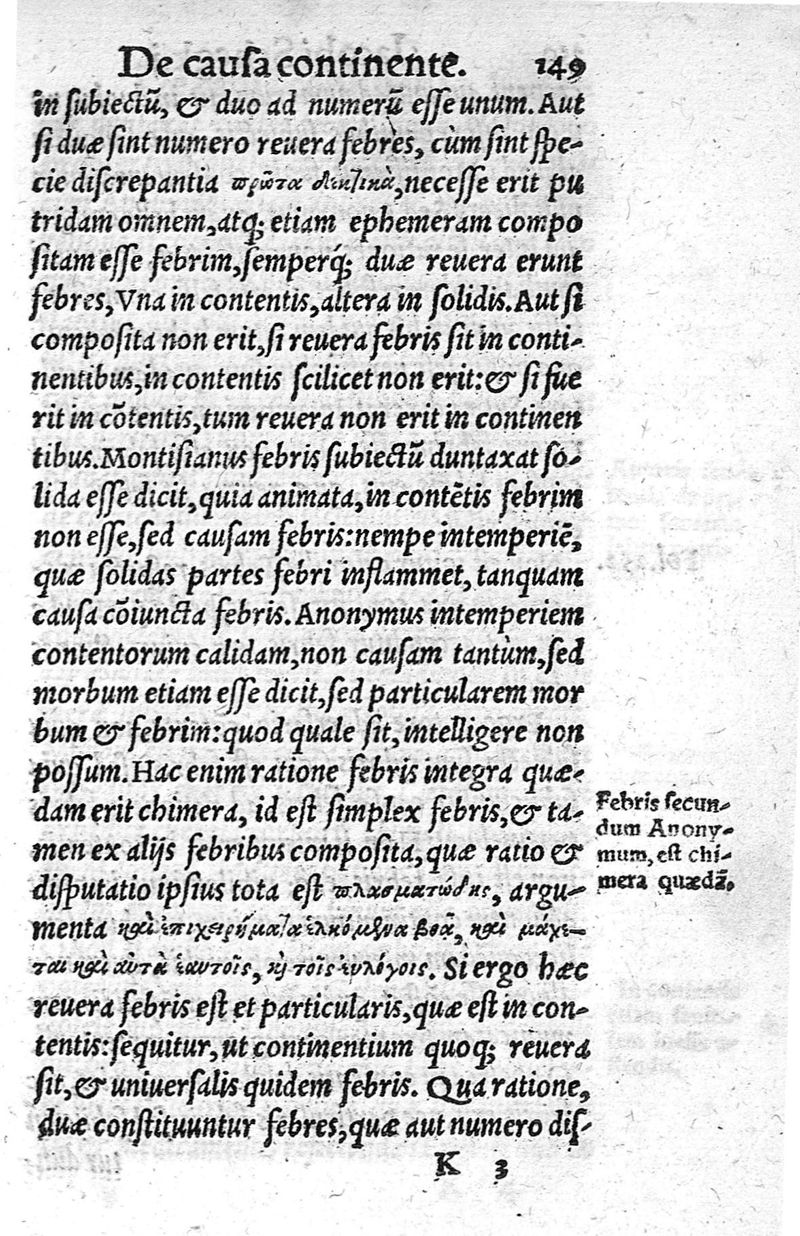 De cauſa continente. 149
in ſubiectũ, & duo ad numerũ eſſe unum. Aut
ſi duæ ſint numero reuera febres, cùm ſint ſpe-
cie diſcrepantia πρῶτα δεκτικὰ, neceſſe erit pu
tridam omnem, atq; etiam ephemeram compo
ſitam eſſe febrim, ſemperq́; duæ reuera erunt
febres, Vna in contentis, altera in ſolidis. Aut ſi
compoſita non erit, ſi reuera febris ſit in conti-
nentibus, in contentis ſcilicet non erit: & ſi fue
rit in cõtentis, tum reuera non erit in continen
tibus. Montiſianus febris ſubiectũ duntaxat ſo-
lida eſſe dicit, quia animata, in contẽtis febrim
non eſſe, ſed cauſam febris: nempe intemperiẽ,
quæ ſolidas partes febri inflammet, tanquam
cauſa cõiuncta febris. Anonymus intemperiem
contentorum calidam, non cauſam tantùm, ſed
morbum etiam eſſe dicit, ſed particularem mor
bum & febrim: quod quale ſit, intelligere non
poſſum. Hac enim ratione febris integra quæ-
dam erit chimera, id eſt ſimplex febris, & ta-
men ex alijs febribus compoſita, quæ ratio &
diſputatio ipſius tota eſt πλασματώδης, argu-
menta καὶ ἐπιχειρήματα ἑλκόμενα βοᾷ, καὶ μάχε-
ται καὶ αὐτὰ ἑαυτοῖς, κỳ τοῖς εὐλόγοις. Si ergo hæc
reuera febris eſt et particularis, quæ eſt in con-
tentis: ſequitur, ut continentium quoq; reuera
ſit, & uniuerſalis quidem febris. Qua ratione,
duæ conſtituuntur febres, quæ aut numero diſ-
K 3
Febris ſecun-
dum Anony-
mum, eſt chi-
mera quædã.